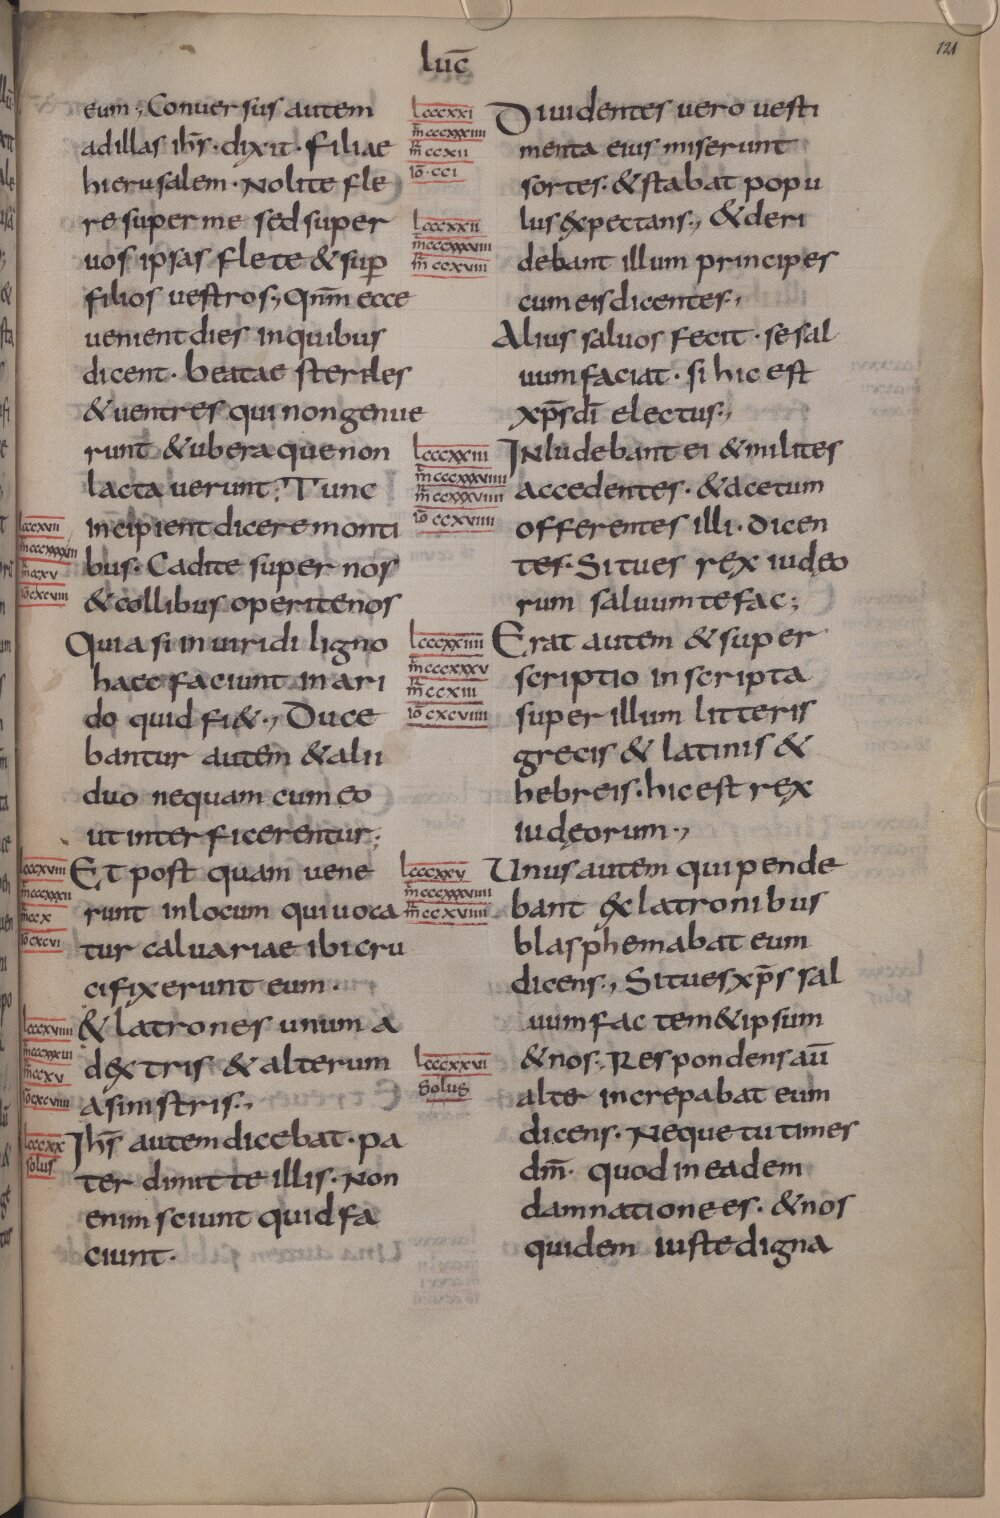 luc̄
121
eum ; Conuersus autem
ad illas ihs̄ · dixit · Filiae
hierusalem · Nolite fle
re super me sed super
uos ipsas flete & sup̄
filios uestros ·, Qnm̄ ecce
uenient dies in quibus
dicent · beatae steriles
& uentres qui non genue
runt & ubera que non
lacta uerunt ; Tunc
lcccxvii
incipient dicere monti
bus · Cadite super nos
& collibus operite nos
Quia si in uiridi ligno
haec faciunt in ari
do quid fi& ·, Duce
bantur autem & alii
duo nequam cum eo
ut interficerentur ;
lcccxviii
Et post quam uene
runt in locum qui uoca
tur caluariae ibi cru
cifixerunt eum ·
lcccxviiii
& latrones unum a
dextris & alterum
a sinistris ·,
lcccxx
solus
Ihs̄ autem dicebat · pa
ter dimitte illis · Non
enim sciunt quid fa
ciunt ·
lcccxxi
m̄ cccxxxiiii
m̄ ccxii
io̅ · cci
Diuidentes uero uesti
menta eius miserunt
sortes · & stabat popu
lcccxxii
m̄ ccxviii
lus expectans ·, & deri
debant illum principes
cum eis dicentes ,
Alius saluos fecit · se sal
uum faciat · si hic est
xp̄s dī electus ·,
lcccxxiii
io̅ ccxviiii
Inludebant ei & milites
accedentes · & acetum
offerentes illi · dicen
tes · Si tu es rex iudęo
rum saluum te fac ;
lcccxxiiii
m̄ cccxxxv
m̄ ccxiii
io̅ cxcviiii
Erat autem & super
scriptio inscripta
super illum litteris
grecis & latinis &
hebreis · hic est rex
iudęorum ·,
lcccxxv
m̄ cccxxxviiii
m̄ ccxviiii
Unus autem qui pende
bant ex latronibus
blasphemabat eum
dicens ·, Si tu es xp̄s sal
uum fac tem&ipsum
lcccxxvi
solus
& nos ·, Respondens aū
alter increpabat eum
dicens · Neque tu times
dm̄ · quod in eadem
damnatione es · & nos
quidem iuste digna